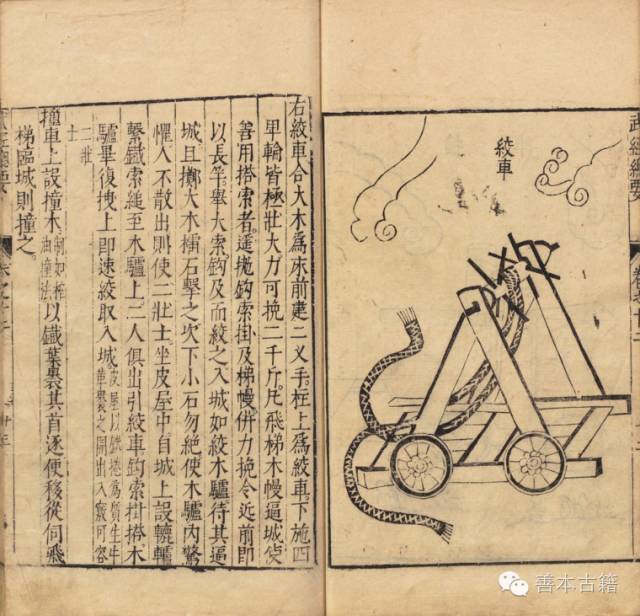 武經總要
卷之十二
絞車
右絞車合大木爲床前建二叉手柱上爲絞車下施四
卑輪皆極壯大力可挽二千斤凡飛梯木幔逼城使
善用搭索者遥抛鈎索掛及梯幔併力挽令近前即
以長竿舉大索鈎及而絞之入城如絞木驢待其逼
城且擲大木檑石擊之次下小石勿絶使木驢内驚
懼人不散出則使二壯士坐皮屋中自城上設轆轤
繫鐵索縋至木驢上二人俱出引絞車鈎索掛搭木
驢畢復拽上即速絞取入城皮屋以鐵捲爲質生牛革裹之開出入竅可容
二壯士
撞車上設撞木制如榨油撞法以鐵葉裹其首逐便移從伺飛
梯臨城則撞之
武經總要
善本古籍